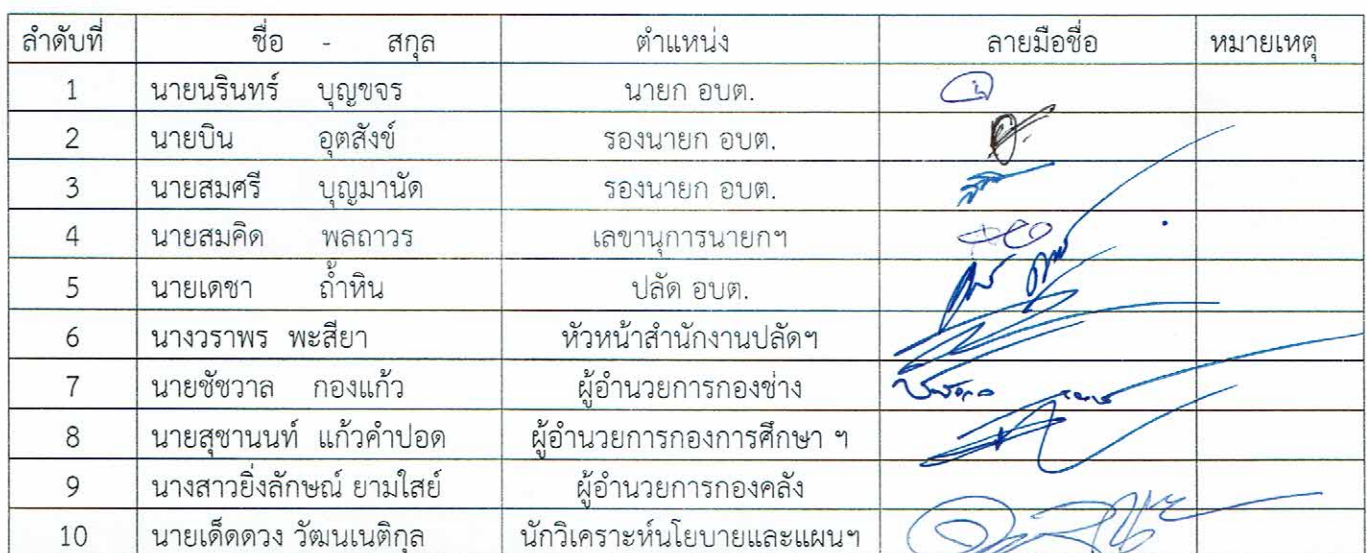 ลำดับที่ ชื่อ - สกุล ตำแหน่ง ลายมือชื่อ หมายเหตุ
1 นายนรินทร์ บุญขจร นายก อบต.
2 นายบิน อุตสังข์ รองนายก อบต.
3 นายสมศรี บุญมานัด รองนายก อบต.
4 นายสมคิด พลถาวร เลขานุการนายกฯ
5 นายเดชา ถ้ำหิน ปลัด อบต.
6 นางวราพร พะสียา หัวหน้าสำนักงานปลัดฯ
7 นายชัชวาล กองแก้ว ผู้อำนวยการกองช่าง
8 นายสุชานนท์ แก้วคำปอด ผู้อำนวยการกองการศึกษา ฯ
9 นางสาวยิ่งลักษณ์ ยามใสย์ ผู้อำนวยการกองคลัง
10 นายเด็ดดวง วัฒนเนติกุล นักวิเคราะห์นโยบายและแผนฯ